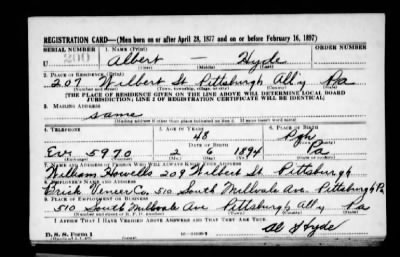 REGISTRATION CARD—(Men born on or after April 28, 1877 and on or before February 16, 1897)
SERIAL NUMBER 1. NAME (Print)
U 200 Albert — Hyde
(First) (Middle) (Last)
2. PLACE OF RESIDENCE (Print)
207 Wilbert St Pittsburgh All'y Pa
(Number and street) (Town, township, village, or city) (County) (State)
[THE PLACE OF RESIDENCE GIVEN ON THE LINE ABOVE WILL DETERMINE LOCAL BOARD
JURISDICTION; LINE 2 OF REGISTRATION CERTIFICATE WILL BE IDENTICAL]
3. MAILING ADDRESS
same
[Mailing address if other than place indicated on line 2. If same insert word same]
4. TELEPHONE 5. AGE IN YEARS 6. PLACE OF BIRTH
48 Pgh
DATE OF BIRTH
Ev 5970 2 6 1894 Pa
7. NAME AND ADDRESS OF PERSON WHO WILL ALWAYS KNOW YOUR ADDRESS
William Howells 209 Wilbert St Pittsburgh
8. EMPLOYER'S NAME AND ADDRESS
Brick Veneer Co. 510 South Millvale Ave. Pittsburgh Pa
9. PLACE OF EMPLOYMENT OR BUSINESS
510 South Millvale Ave Pittsburgh All'y Pa
(Number and street or R. F. D. number) (Town) (County) (State)
I AFFIRM THAT I HAVE VERIFIED ABOVE ANSWERS AND THAT THEY ARE TRUE.
D. S. S. Form 1 Al Hyde